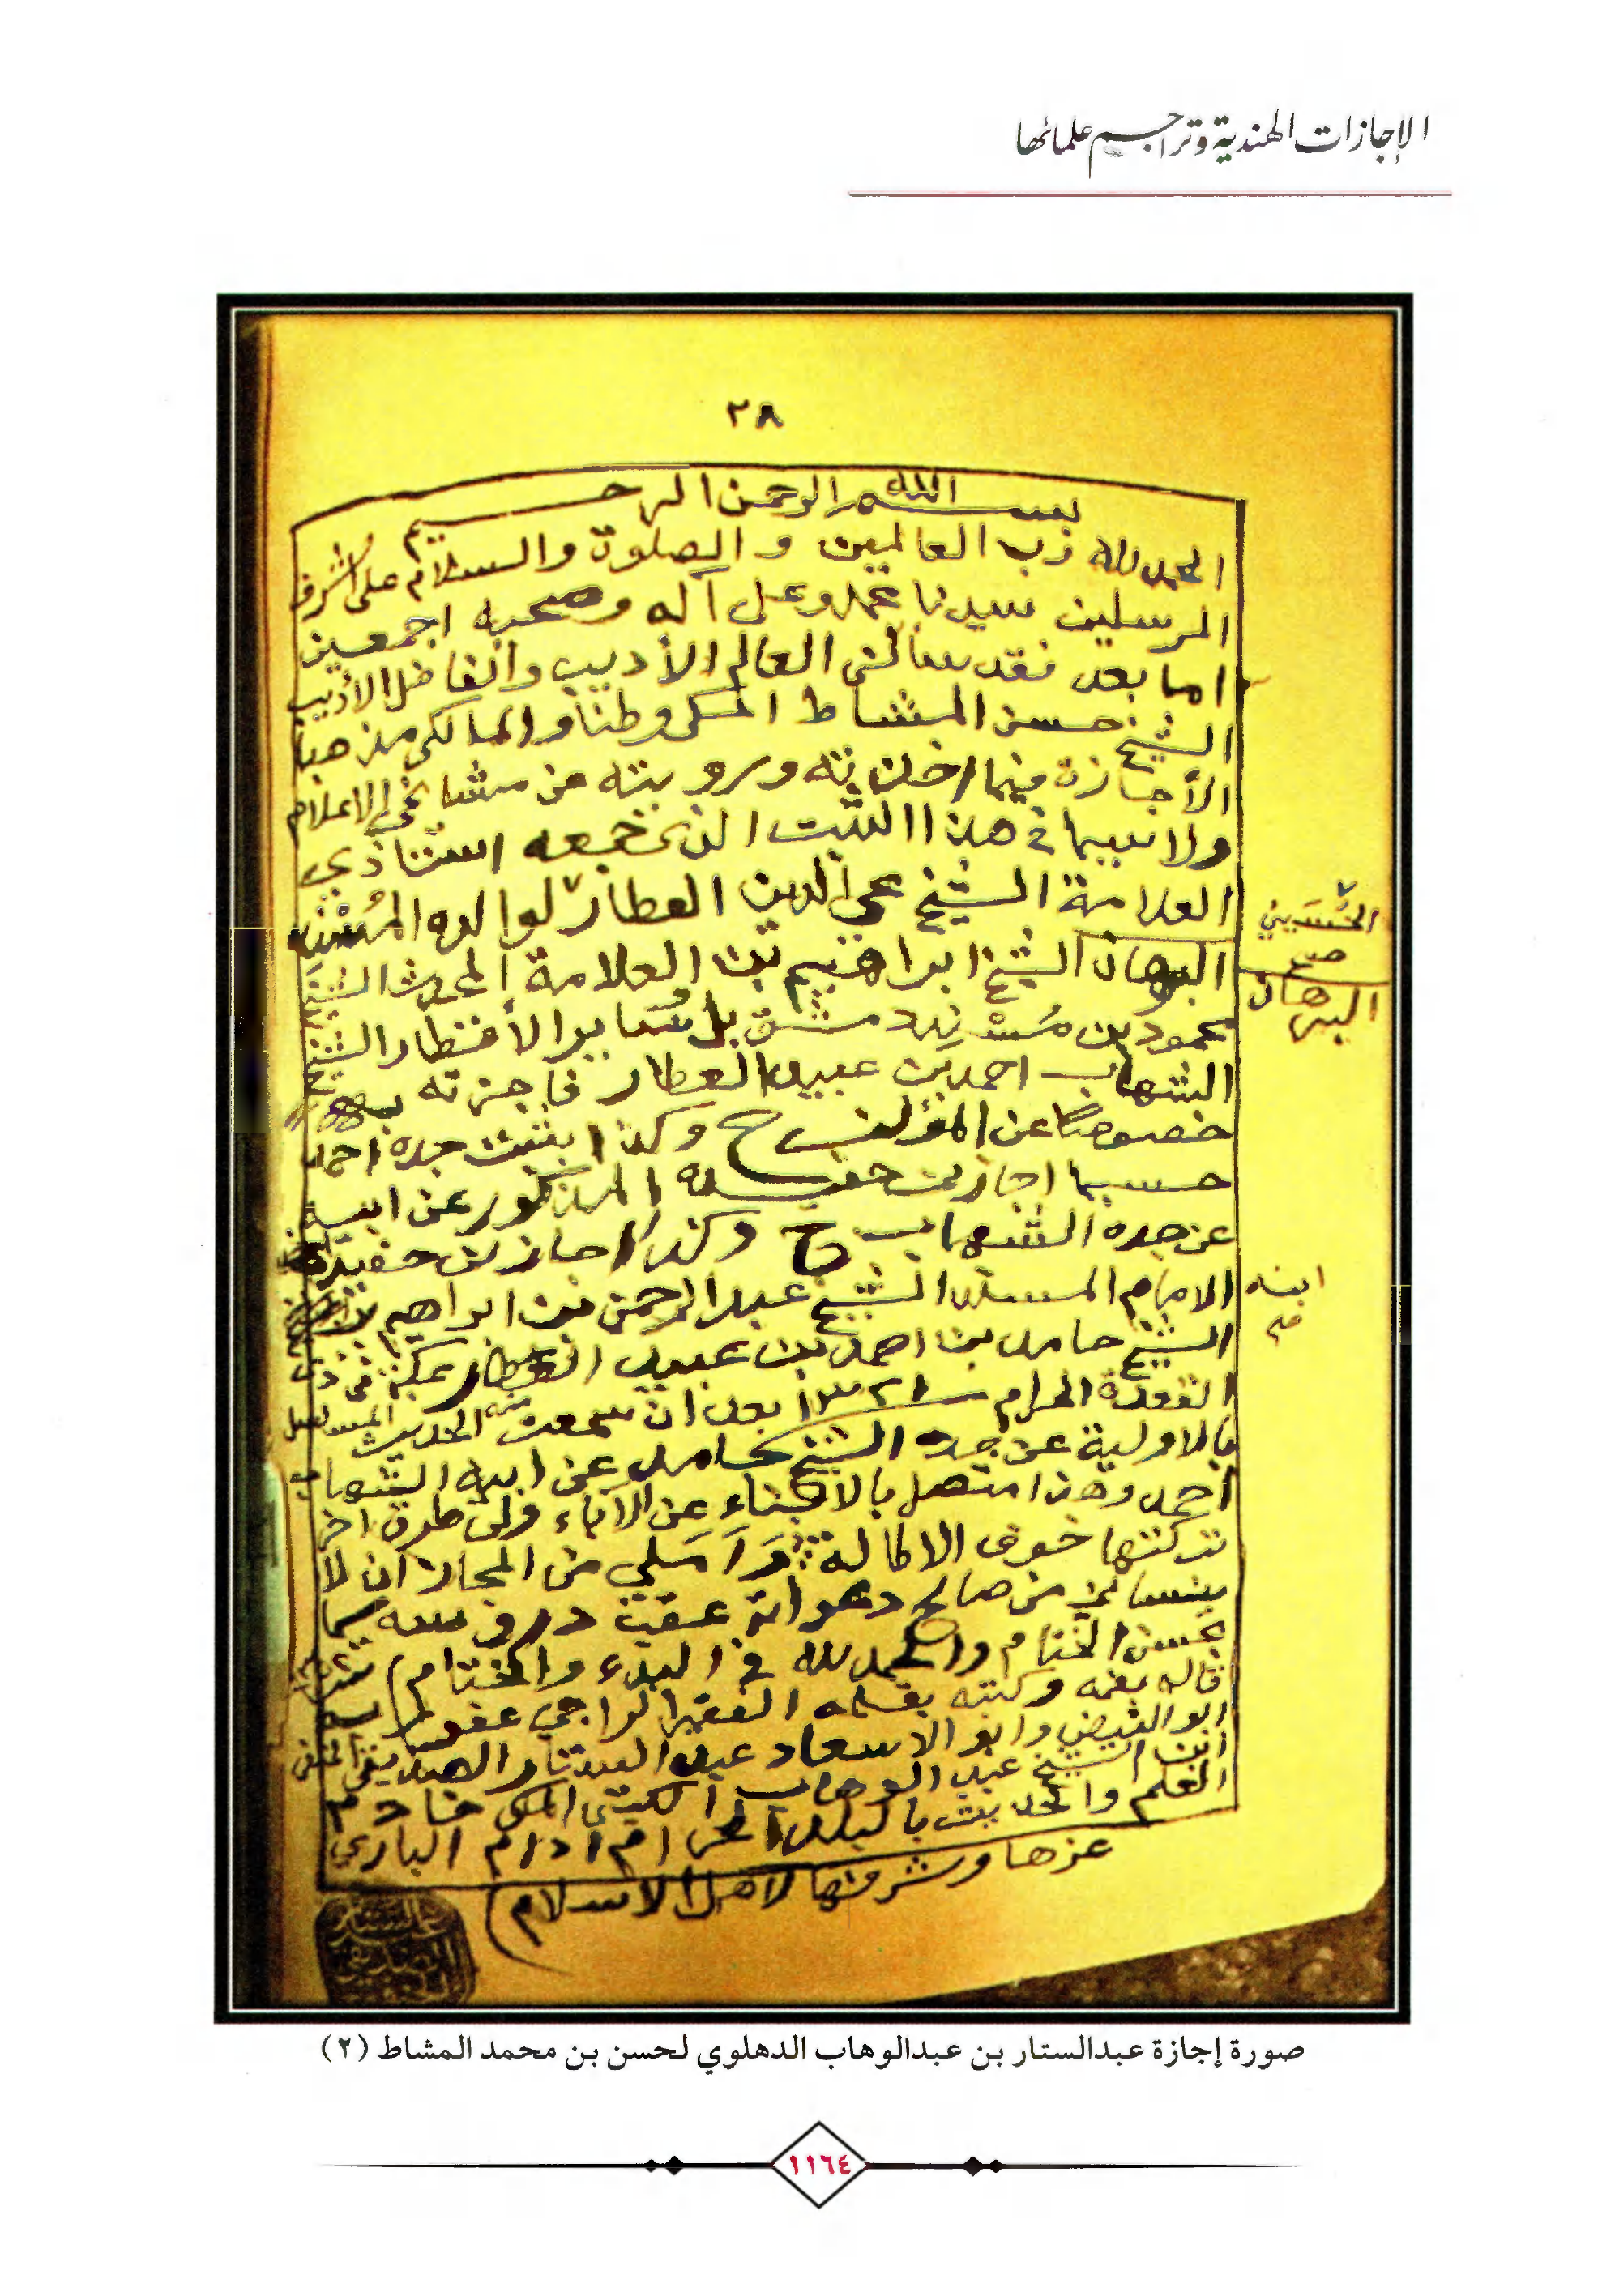 الإجازات الهندية وتراجم علمائها
٢٨
بسم الله الرحمن الرحيم
الحمد لله رب العالمين والصلوة والسلام على اشرف
المرسلين سيدنا محمد وعلى آله وصحبه اجمعين
اما بعد فقد سألني العالم الأديب والفاضل الأديب
الشيخ حسن المشاط المكي وطنا والمالكي مذهبا
الأجازة فيما اخذته ورويته عن مشايخي الاعلام
ولا سيما في هذا الثبت الذي جمعه استاذي
العلامة الشيخ العطار لوالده المسند
الحسيني
صح
البرهان الشيخ ابراهيم بن العلامة المحدث الشيخ
البرهان
محمود بن مسند دمشق بل سائر الأقطار الشيخ
الشهاب احمد بن عبيد العطار فاجزته به
خصوصا عن المؤلف ح وكذا بثبت جده احمد
حسبما اجازني حفيده المذكور عن ابيه
عن جده الشهاب ح وكذا اجازني حفيده
الامام المسند الشيخ عبد الرحمن بن ابراهيم
ابنه
صح
الشيخ حامد بن احمد بن عبيد العطار بمكة في ذي
القعدة الحرام ١٣٢١ بعد ان سمعت منه الحديث المسلسل
بالاولية عن جده الشيخ حامد عن ابيه الشهاب
احمد وهذا متصل بالأبناء عن الآباء ولي طرق اخر
تركتها خوف الاطالة وآملي من المجاز ان لا
ينساني من صالح دعواته عقب دروسه سيما
بحسن الختام والحمد لله في البدء والختام
قاله بفمه وكتبه بقلمه الفقير الراجي عفو
ابو الفيض وابو الاسعاد عبد الستار الصديقي الحنفي
ابن الشيخ عبد الوهاب الكتبي المكي خادم
العلم والحديث بالبلد الحرام ادام الباري
عزها وشرفها لاهل الاسلام
صورة إجازة عبدالستار بن عبدالوهاب الدهلوي لحسن بن محمد المشاط (٢)
١١٦٤